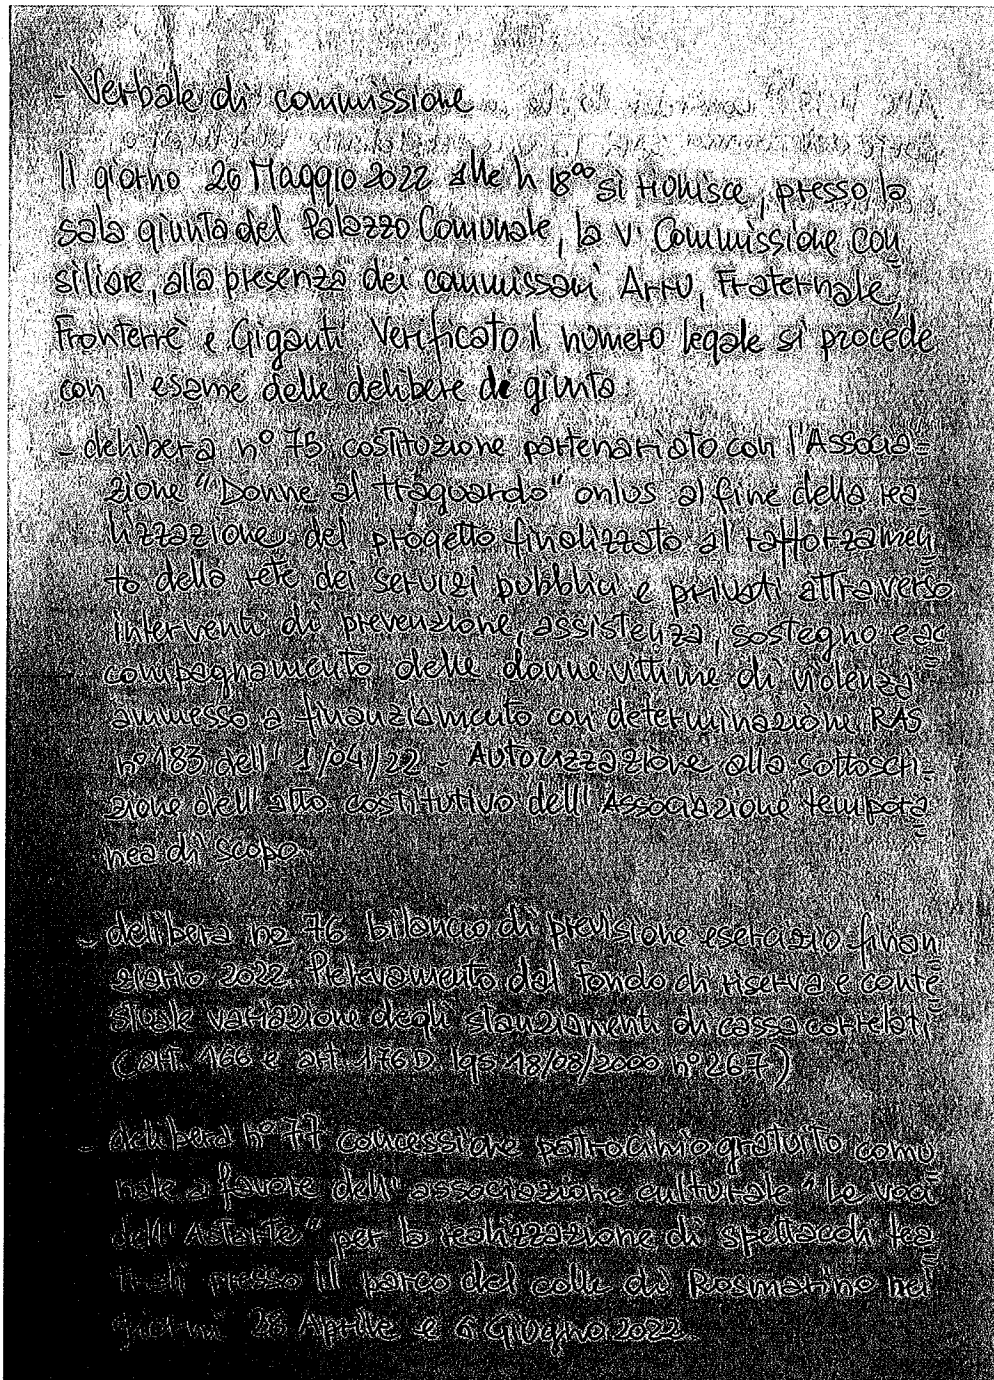 - Verbale di commissione
Il giorno 20 Maggio 2022 alle h 18°° si riunisce, presso la
sala giunta del Palazzo Comunale, la V° Commissione con
siliare, alla presenza dei commissari Arru, Fraternale,
Fronterrè e Giganti. Verificato il numero legale si procede
con l'esame delle delibere di giunta
- delibera n° 75 costituzione partenariato con l'Associa-
zione "Donne al traguardo" onlus al fine della rea
lizzazione del progetto finalizzato al rafforzamen
to della rete dei servizi pubblici e privati attraverso
interventi di prevenzione, assistenza, sostegno e ac
compagnamento delle donne vittime di violenza
ammesso a finanziamento con determinazione RAS
n° 183 dell' 1/04/22 - Autorizzazione alla sottoscri-
zione dell'atto costitutivo dell'Associazione tempora
nea di scopo.
- delibera no 76 bilancio di previsione esercizio finan
ziario 2022. Prelevamento dal fondo di riserva e conte
stuale variazione degli stanziamenti di cassa correlati
(art. 166 e art. 176 D. lgs 18/08/2000 n° 267)
- delibera n° 77 concessione patrocinio gratuito comu
nale a favore dell'associazione culturale "Le voci
dell'Astarte" per la realizzazione di spettacoli tea
trali presso il parco del colle di Rosmarino nei
giorni 28 Aprile e 6 Giugno 2022.